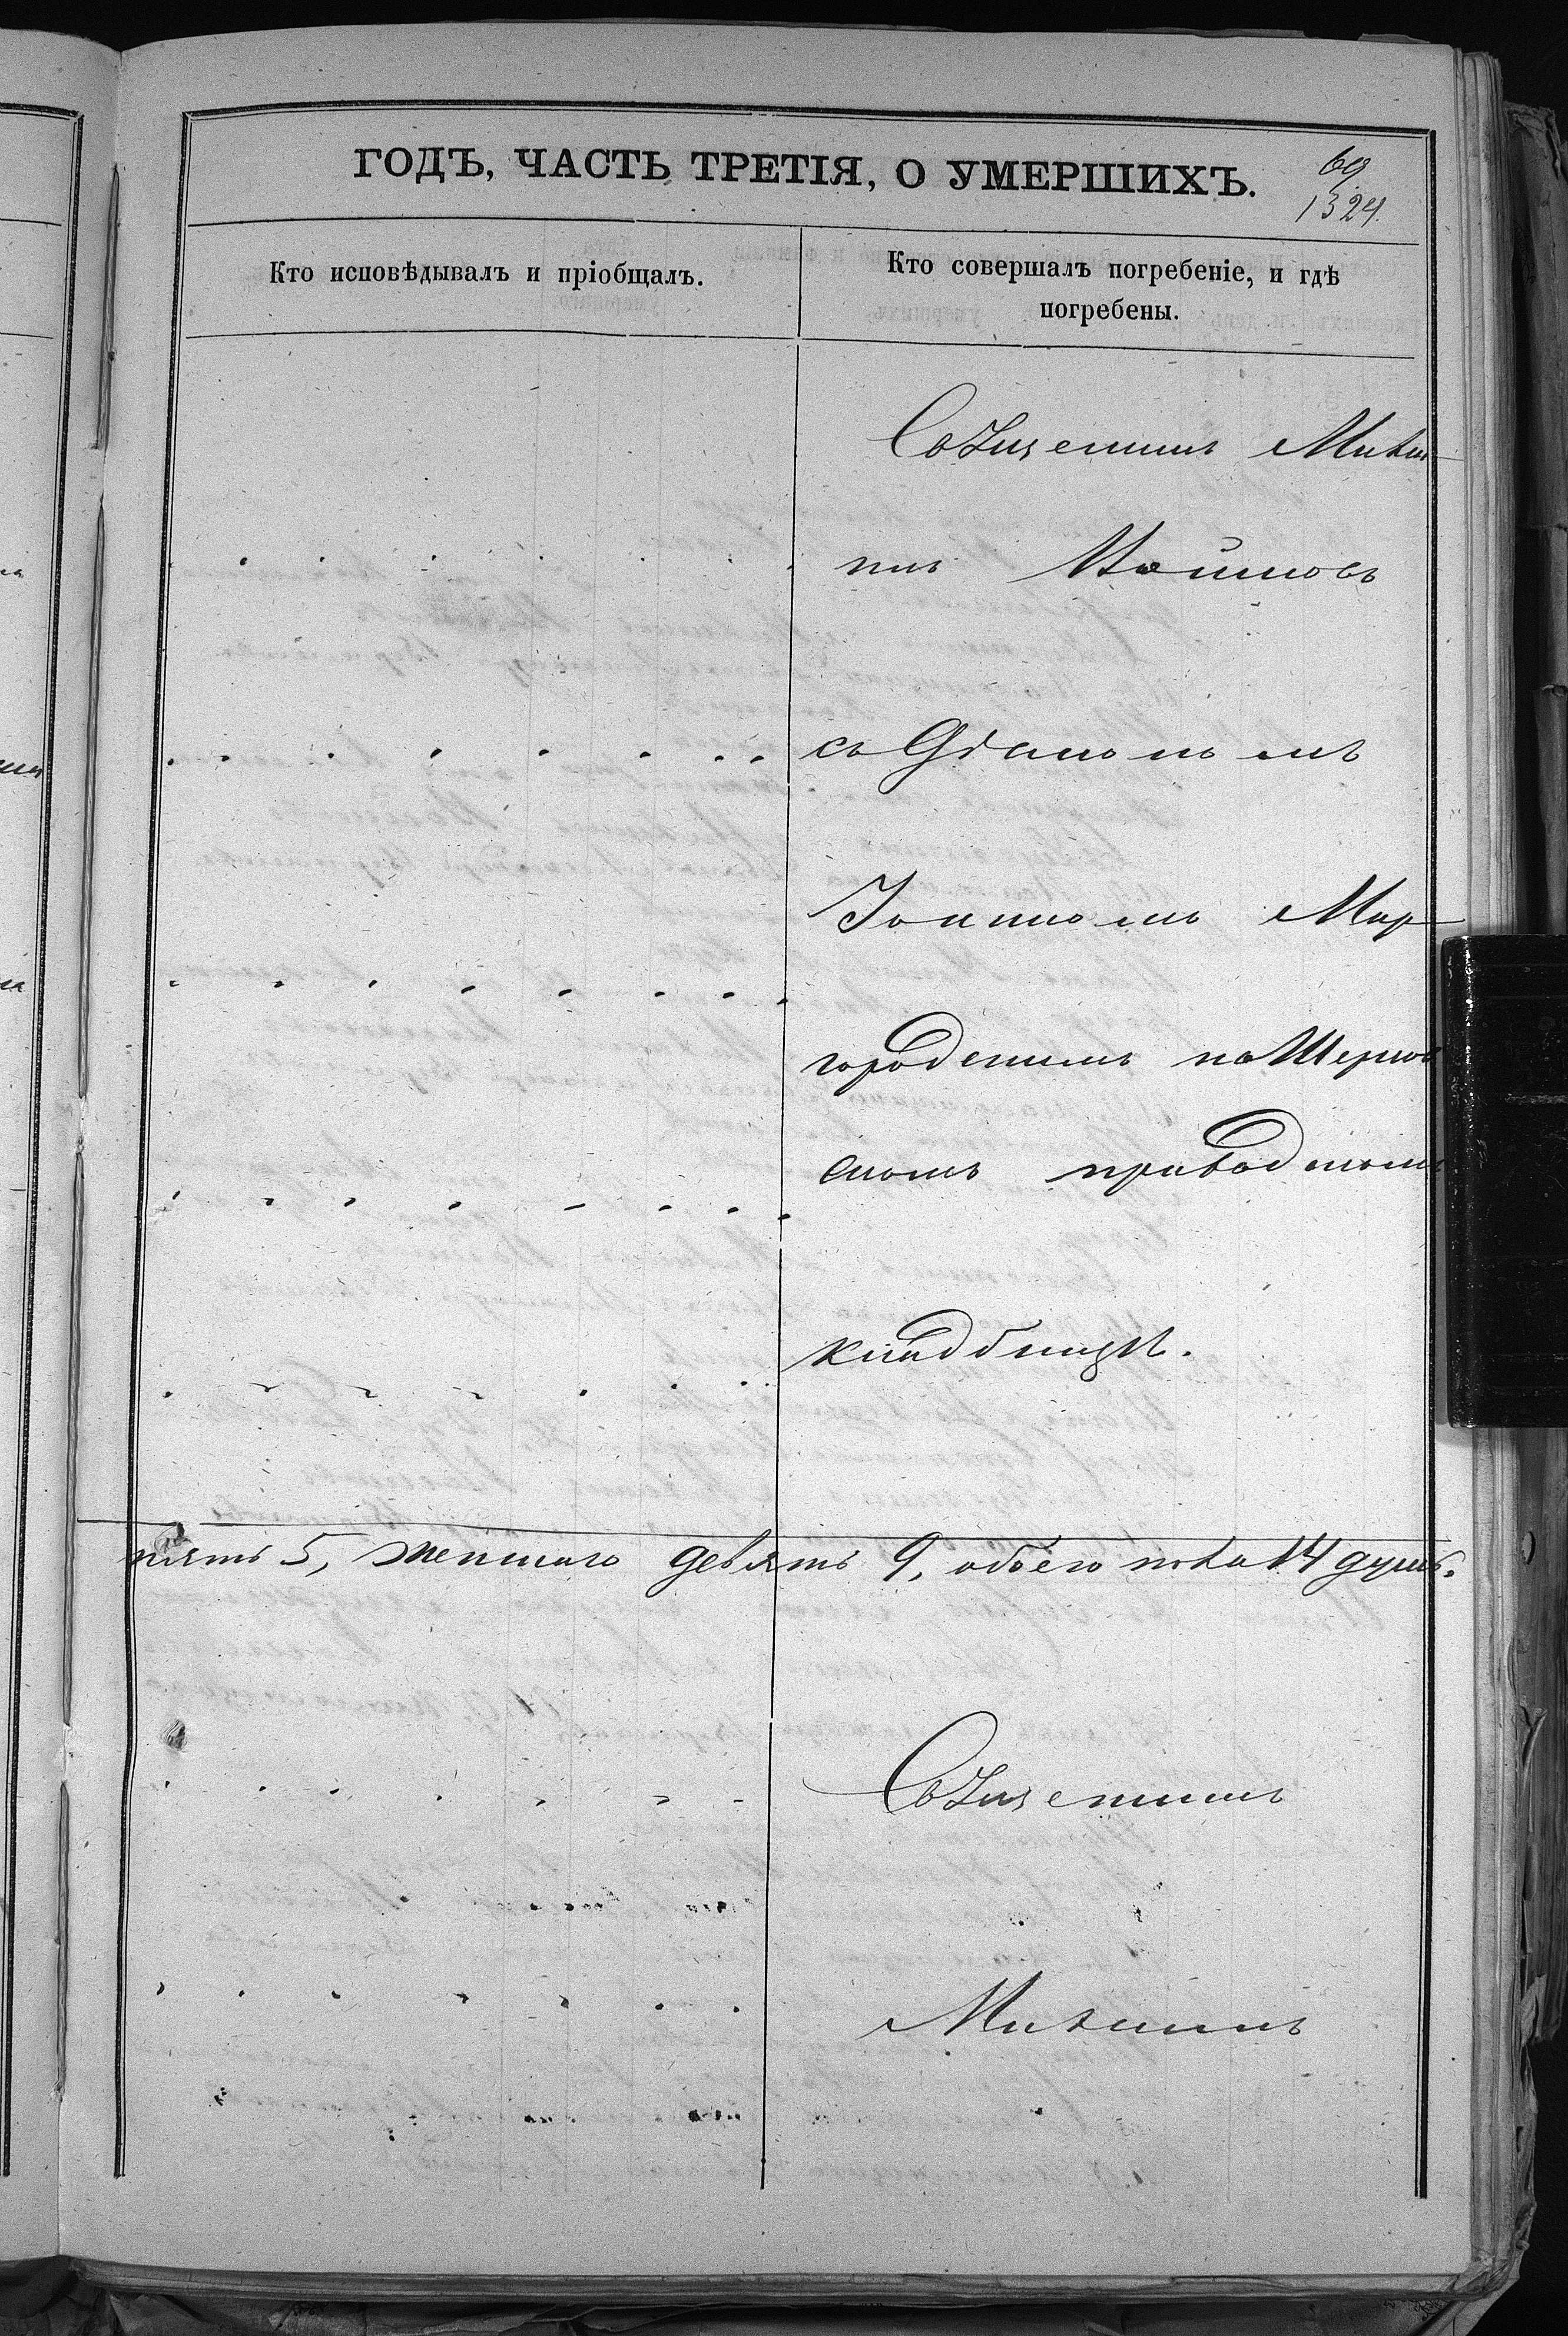 ГОДЪ, ЧАСТЬ ТРЕТІЯ, О УМЕРШИХЪ.
69
1324.
Кто исповѣдывалъ и пріобщалъ.
Кто совершалъ погребеніе, и гдѣ
погребены.
Священникъ Михаи
илъ
съ Діакономъ
Іоанномъ Мир
городскимъ на
скомъ приходскомъ
кладбищѣ.
пять 5, женскаго девять 9, обоего пола 14 душъ.
Священникъ
Михаилъ